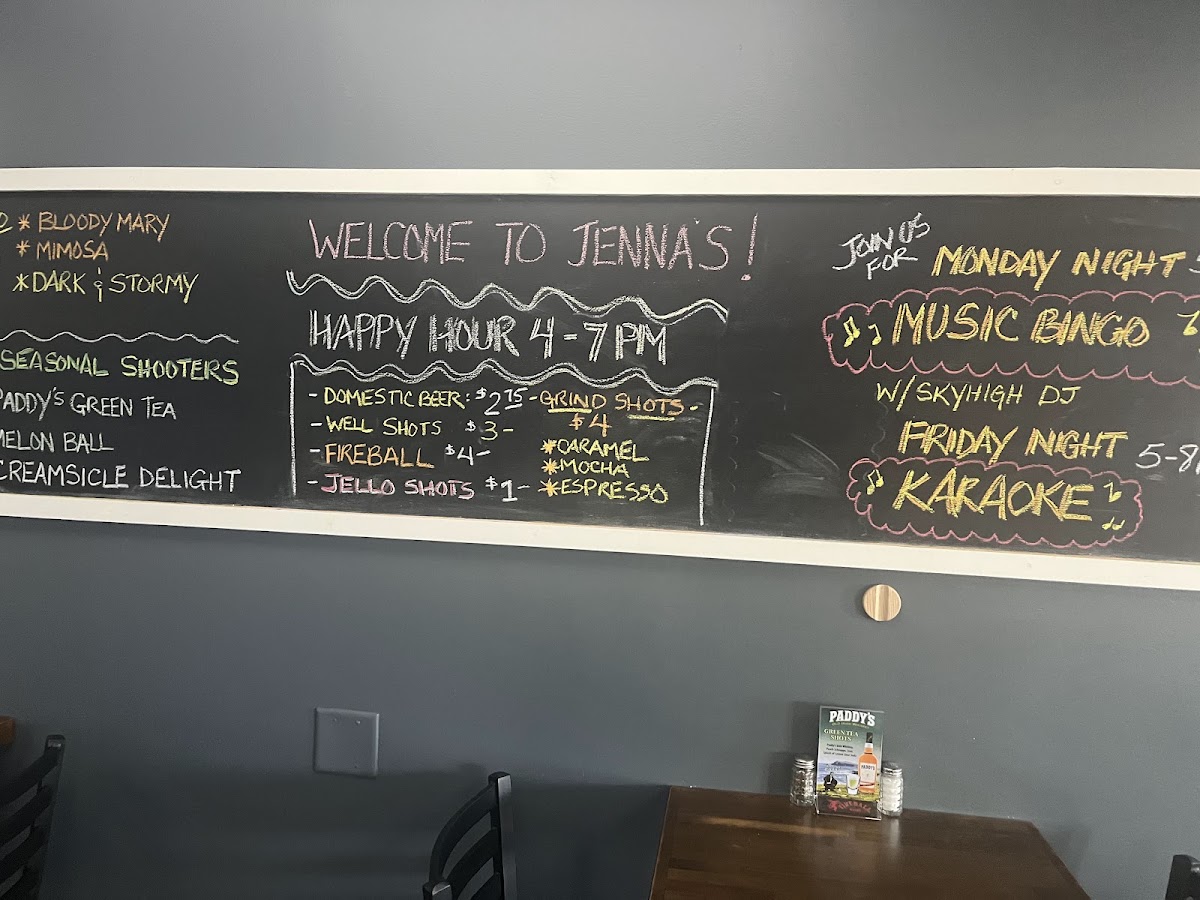 * BLOODY MARY
* MIMOSA
* DARK & STORMY
SEASONAL SHOOTERS
PADDY'S GREEN TEA
MELON BALL
CREAMSICLE DELIGHT
WELCOME TO JENNA'S!
HAPPY HOUR 4-7PM
- DOMESTIC BEER: $2.75
- WELL SHOTS $3 -
- FIREBALL $4 -
- JELLO SHOTS $1 -
- GRIND SHOTS -
$4
* CARAMEL
* MOCHA
* ESPRESSO
JOIN US
FOR
MONDAY NIGHT
MUSIC BINGO
W/ SKYHIGH DJ
FRIDAY NIGHT 5-8
KARAOKE
PADDY'S
GREEN TEA
SHOTS